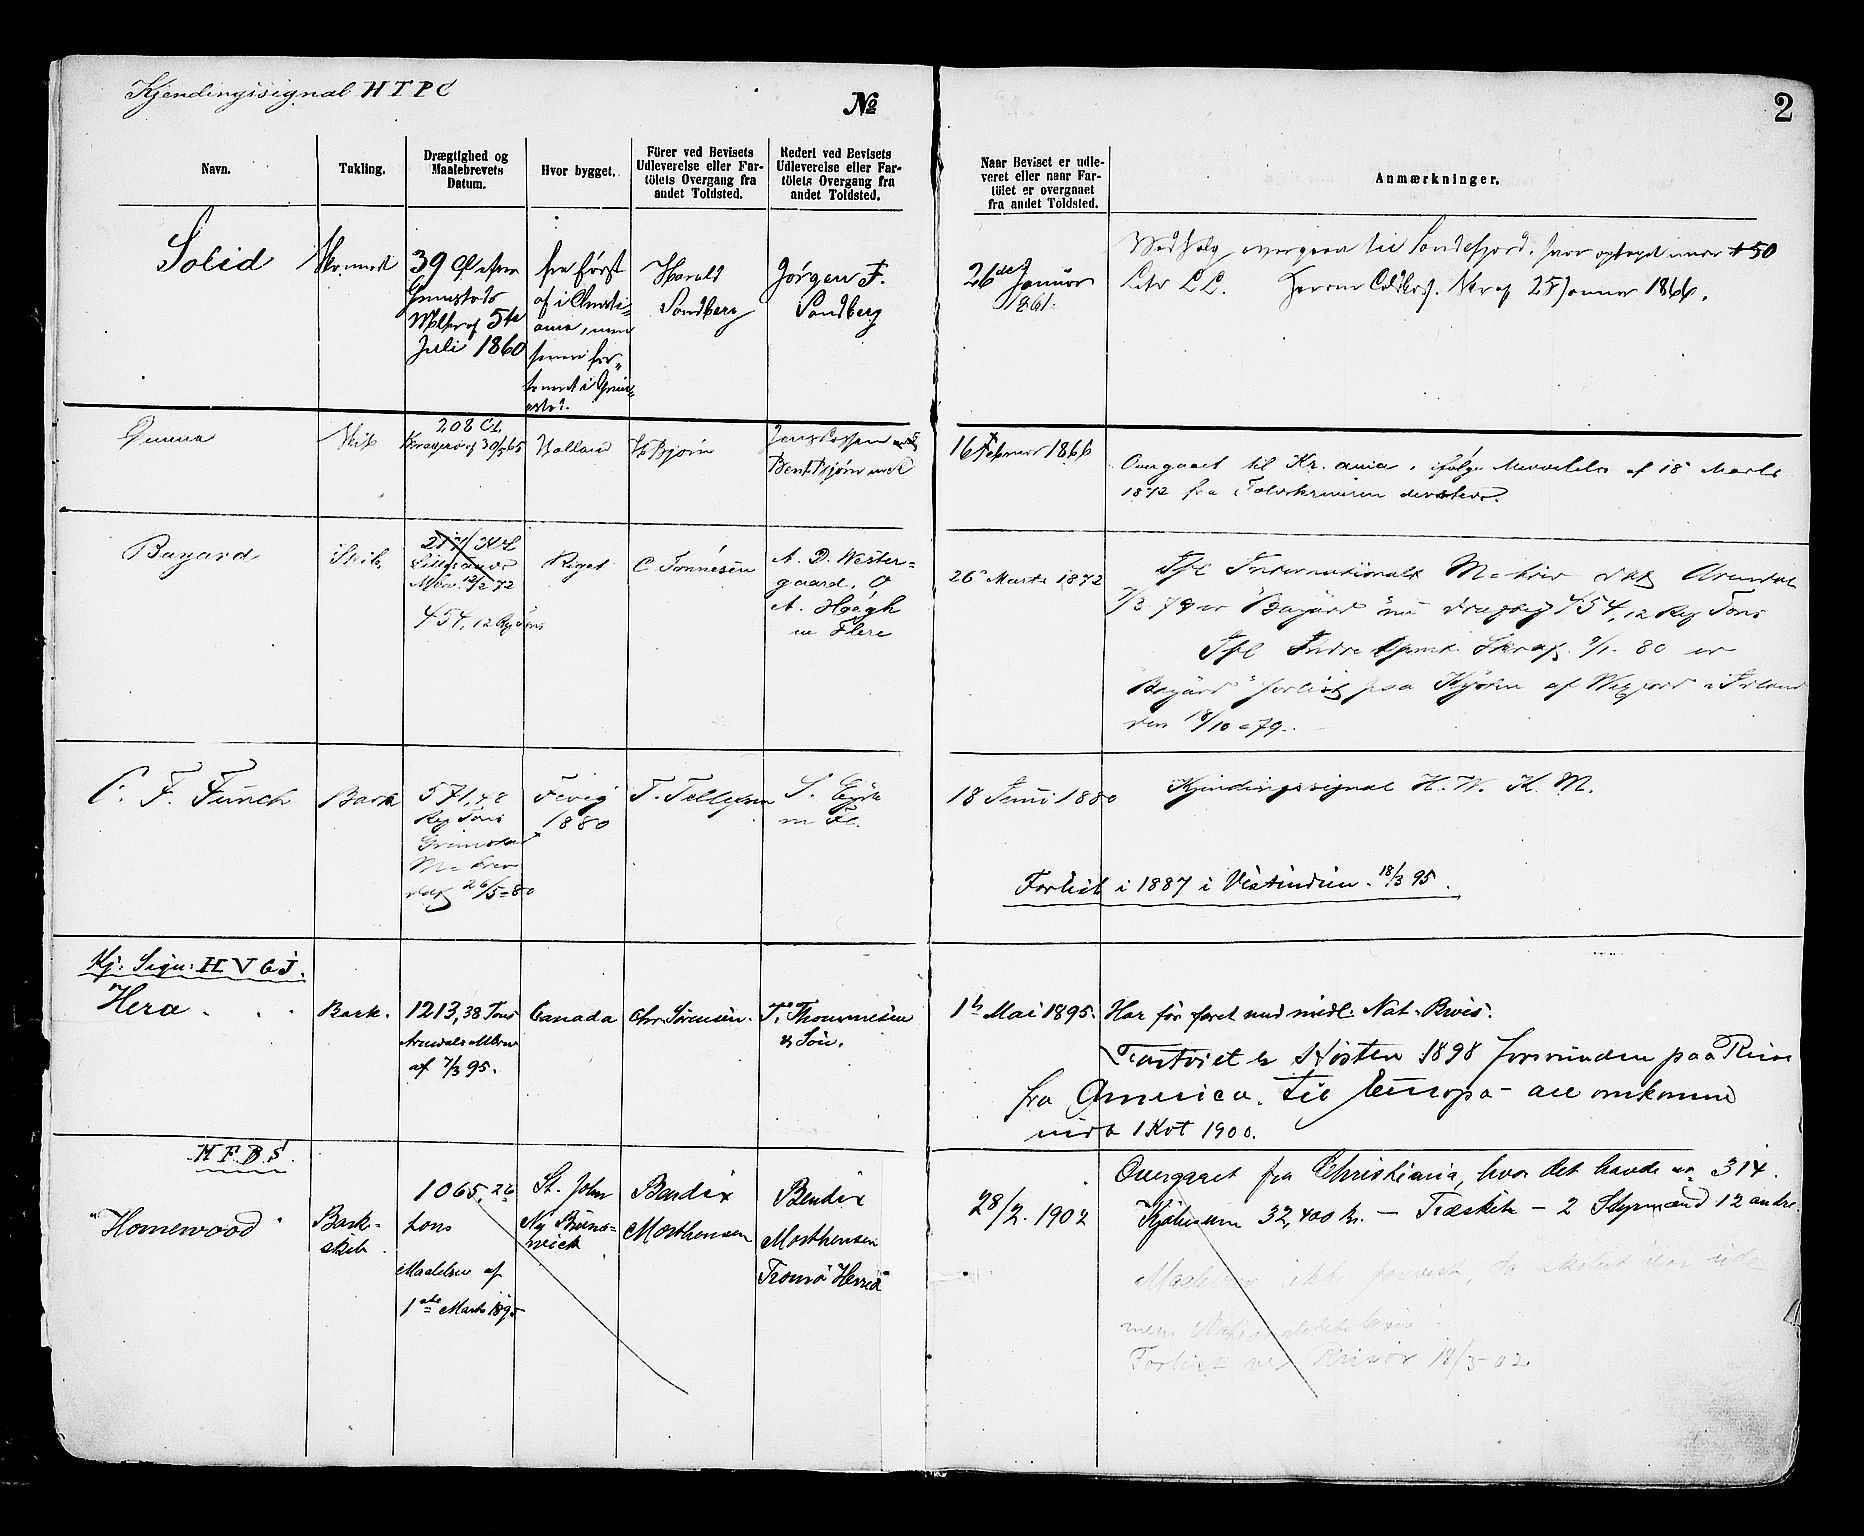 Kjendingssignal HTPC
No
2
Navn.
Takling.
Drægtighed og
Maalebrevets
Datum.
Hvor bygget.
Förer ved Bevisets
Udleverelse eller Far-
tölets Overgang fra
andet Toldsted.
Rederi ved Bevisets
Udleverelse eller Far-
tölets Overgang fra
andet Toldsted.
Naar Beviset er udle-
veret eller naar Far-
tölet er overgaaet
fra andet Toldsted.
Anmærkninger.
Solid
39 Cl
5te
Juli 1860
fra först
af i Christi-
ania, men
senere for-
tömret i Grim-
stad.
Harald
Sandberg
Jörgen F.
Sandberg
26de Januar
1861.
overgaaet til Sandefjord, hvor optaget under 50
Litr CC. Januar 1866.
Skib
208 Cl.
Kragerø af 30/5 65
Holland
H Bjørn
Bent Bjørn
16 Februar 1866
Overgaaet til Kr.ania, ifølge Meddelelse af 18 Marts
1872 fra
Bayard
Skib
Lillesands
Mbrev. 12/2 72
454,12 Reg Tons
Riget
C. Tönnesen
A. D. Wester-
gaard, O
A. Høegh
m Flere
26 Marts 1872
Ifl Internationalt M-brev dat Arendal
7/3 79 er "Bayard" nu drægtig 454,12 Reg Tons
Ifl Indre Dpmt. Skr af 9/1 80 er
Bayard" forlist paa Kysten af Wexford i Irland
den 18/10 79.
C. F. Funch
Bark
571,48
Reg Tons
Grimstad
M-brev
dat 26/5-80
Fevig
1880
T. Tellefsen
S.
m Fl.
18 Juni 1880
Kjendingssignal H. W. K. M.
Forlist i 1887 i Vestindien. 18/3 95.
Kj. Sign: HVGJ.
Hera
Bark.
1213,38 Tons
Arendals Mbrev
af 7/3 95.
Canada
Chr. Sørensen.
T. Thommesen
& Sön.
1ste Mai 1895.
Har för faret med midl. Nat. Bevis.
Fartöiet er Høsten 1898 forsvunden paa Reise
fra America til Europa - alle omkomne
1 Kvt 1900.
HFBS.
"Homewood"
Bark-
skib.
1065,26
tons
Maalebrev af
1ste Marts 1895
St. John
Ny Bruns-
wick
Bendix
Morthensen
Bendix
Morthensen
Tromö Herred
28/2. 1902
Overgaaet fra Christiania, hvor det havde No 314.
Kjöbesum 32,400 kr. - Træskib - 2 Styrmænd 12 andre.
Forlist ved Risör 18/3-02